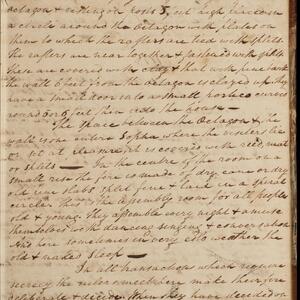 octagon & extension posts 5 feet high placed in
a circle around the Octagon with plates on
them to which the rafters are tied with splits
the rafters are near together & fastened with splits
these are covered with clay & that with pine bark
the wall 6 feet from the Octagon is clayed up, they
have a small door with a small porticoe curved
round 5 or 6 feet then into the house—
The space between the Octagon & the
wall is one intire Sopha where the visitors lie
or sit at pleasure, it is covered with reed, mat
or splits — In the centre of the room on a
small rise the fire is made of dry cane or dry
old pine slabs split fine & laid in a spiral
circle. This is the assembly room for all people
old & young; they assemble every night & amuse
themselves with dancing singing or conversation
And here sometimes in very cold weather the
old & naked sleep—
In all transactions which require
secrecy the rulers meet here make their fire
deliberate & decide. When they have decided on